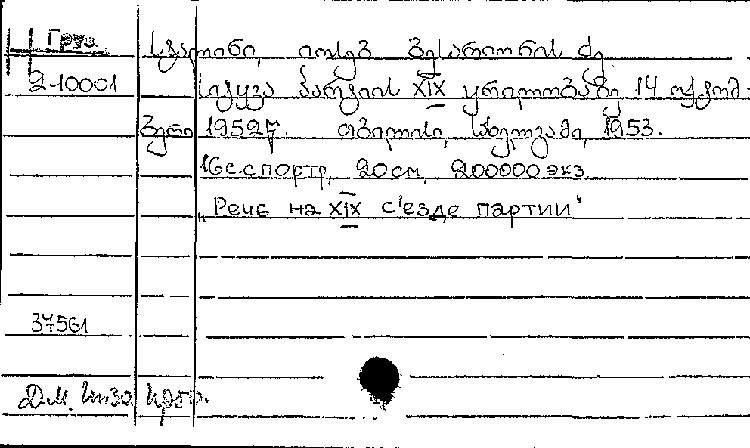 Груз.
სტალინი, იოსებ ბესარიონის ძე
2-10001
სიტყვა პარტიის XIX ყრილობაზე 14 ოქტომ-
ბერი 1952 წ. თბილისი, სახელგამი, 1953.
16 с. с портр. 20 см. 200000 экз.
„Речь на XIX с'езде партии"
37561